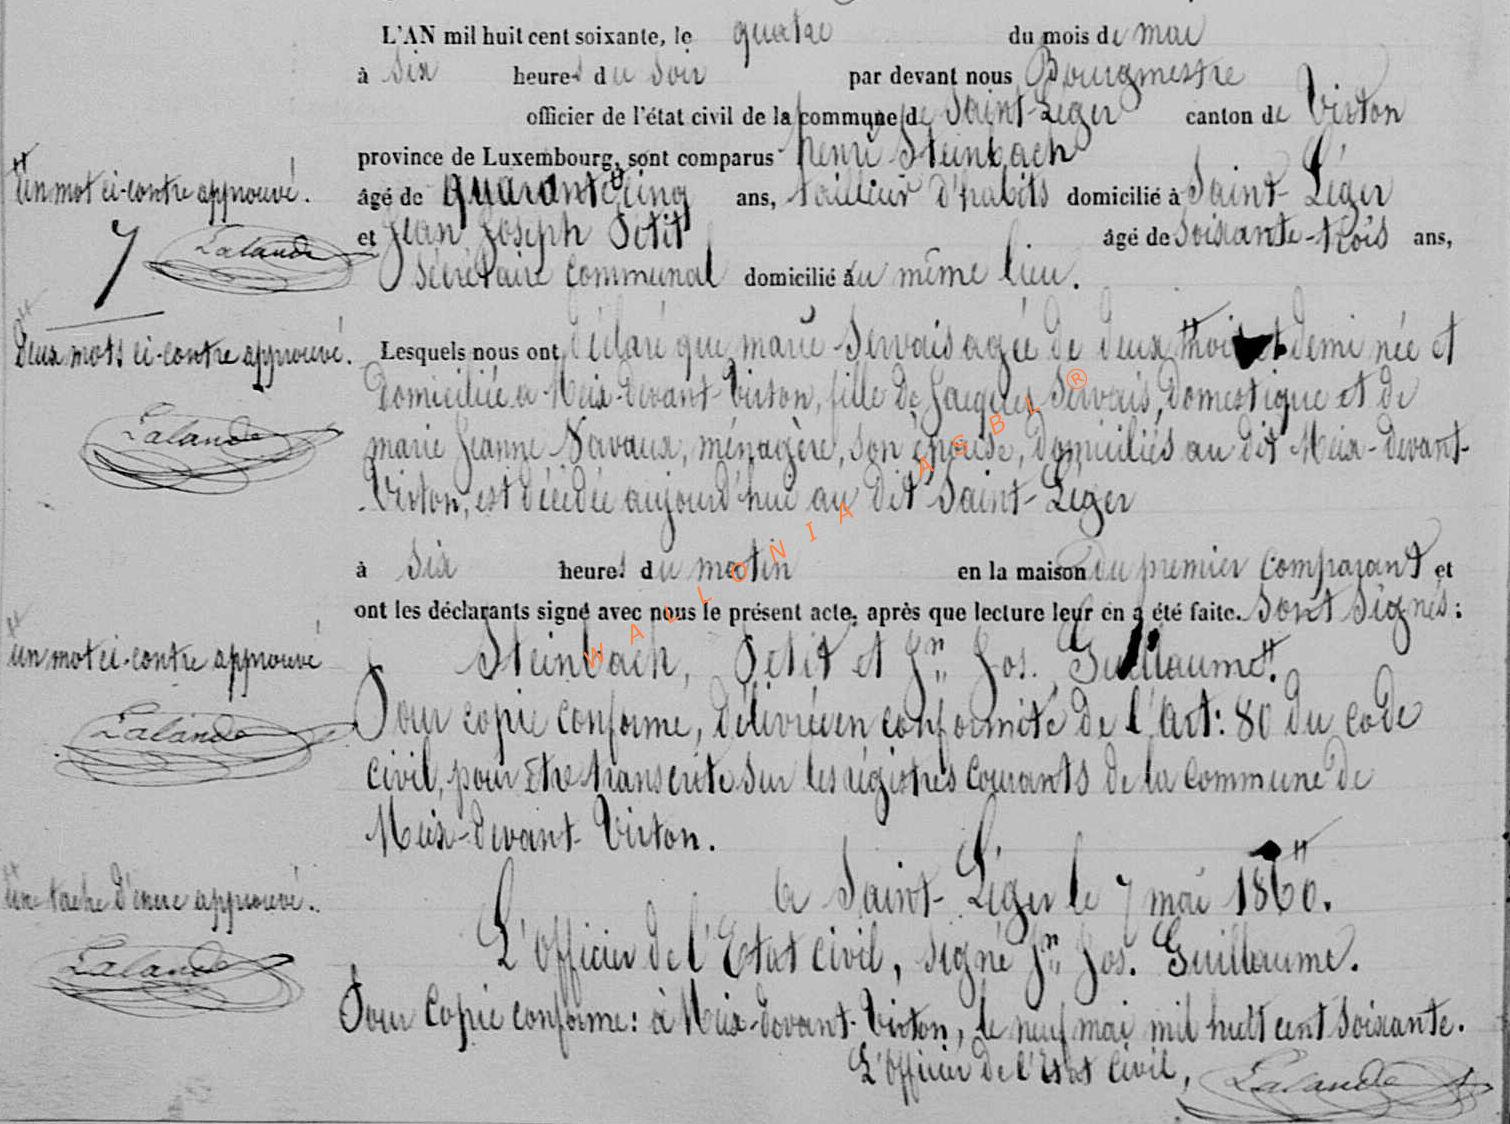 L'AN mil huit cent soixante, le quatre du mois de mai
à six heures du soir par devant nous Bourgmestre
officier de l'état civil de la commune de Saint-Léger canton de Virton
province de Luxembourg, sont comparus henri Steinbach
Un mot ci-contre approuvé. âgé de quarante cinq ans, tailleur d'habits domicilié à Saint-Léger
Lalande et Jean Joseph Petit âgé de soixante-trois ans,
secrétaire communal domicilié au même lieu.
Deux mots ci-contre approuvé. Lesquels nous ont déclaré que marie Servais agée de deux mois et demi née et
domiciliée a Meix-devant-Virton, fille de Jacques Servais, domestique et de
Lalande marie Jeanne Navaux, ménagère, son épouse, domiciliés au dit Meix-devant-
Virton, est décédée aujourd'hui au dit Saint-Léger
à six heures du matin en la maison du premier comparant et
ont les déclarants signé avec nous le présent acte, après que lecture leur en a été faite. Sont signés :
un mot ci-contre approuvé Steinbach, Petit et Jn Jos. Guillaume.
Lalande Pour copie conforme, délivrée en conformité de l'Art: 80 du code
civil, pour être transcrite sur les régistres courants de la commune de
Meix-devant-Virton.
Une tache d'encre approuvé. a Saint-Léger le 7 mai 1860.
Lalande L'Officier de l'Etat civil, signé Jn Jos. Guillaume.
Pour copie conforme: à Meix-devant-Virton, le neuf mai mil huit cent soixante.
L'Officier de l'Etat civil, Lalande
WALLONIA ASBL ®